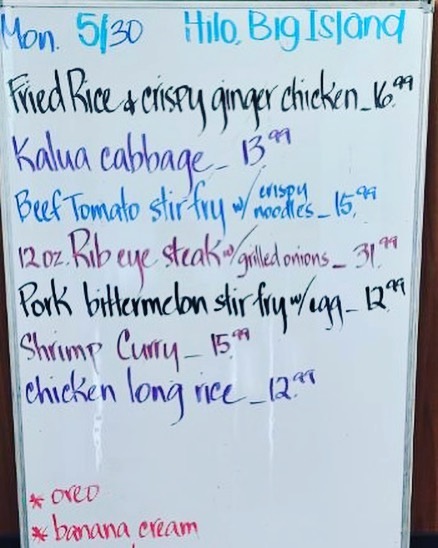 Mon. 5/30 Hilo, Big Island
Fried Rice & crispy ginger chicken_16.99
Kalua cabbage_ 13.99
Beef Tomato stir fry w/ crispy noodles_15.99
12 oz. Rib eye steak w/ grilled onions_ 31.99
Pork bittermelon stir fry w/ egg_ 12.99
Shrimp Curry_ 15.99
chicken long rice_12.99
* oreo
* banana cream